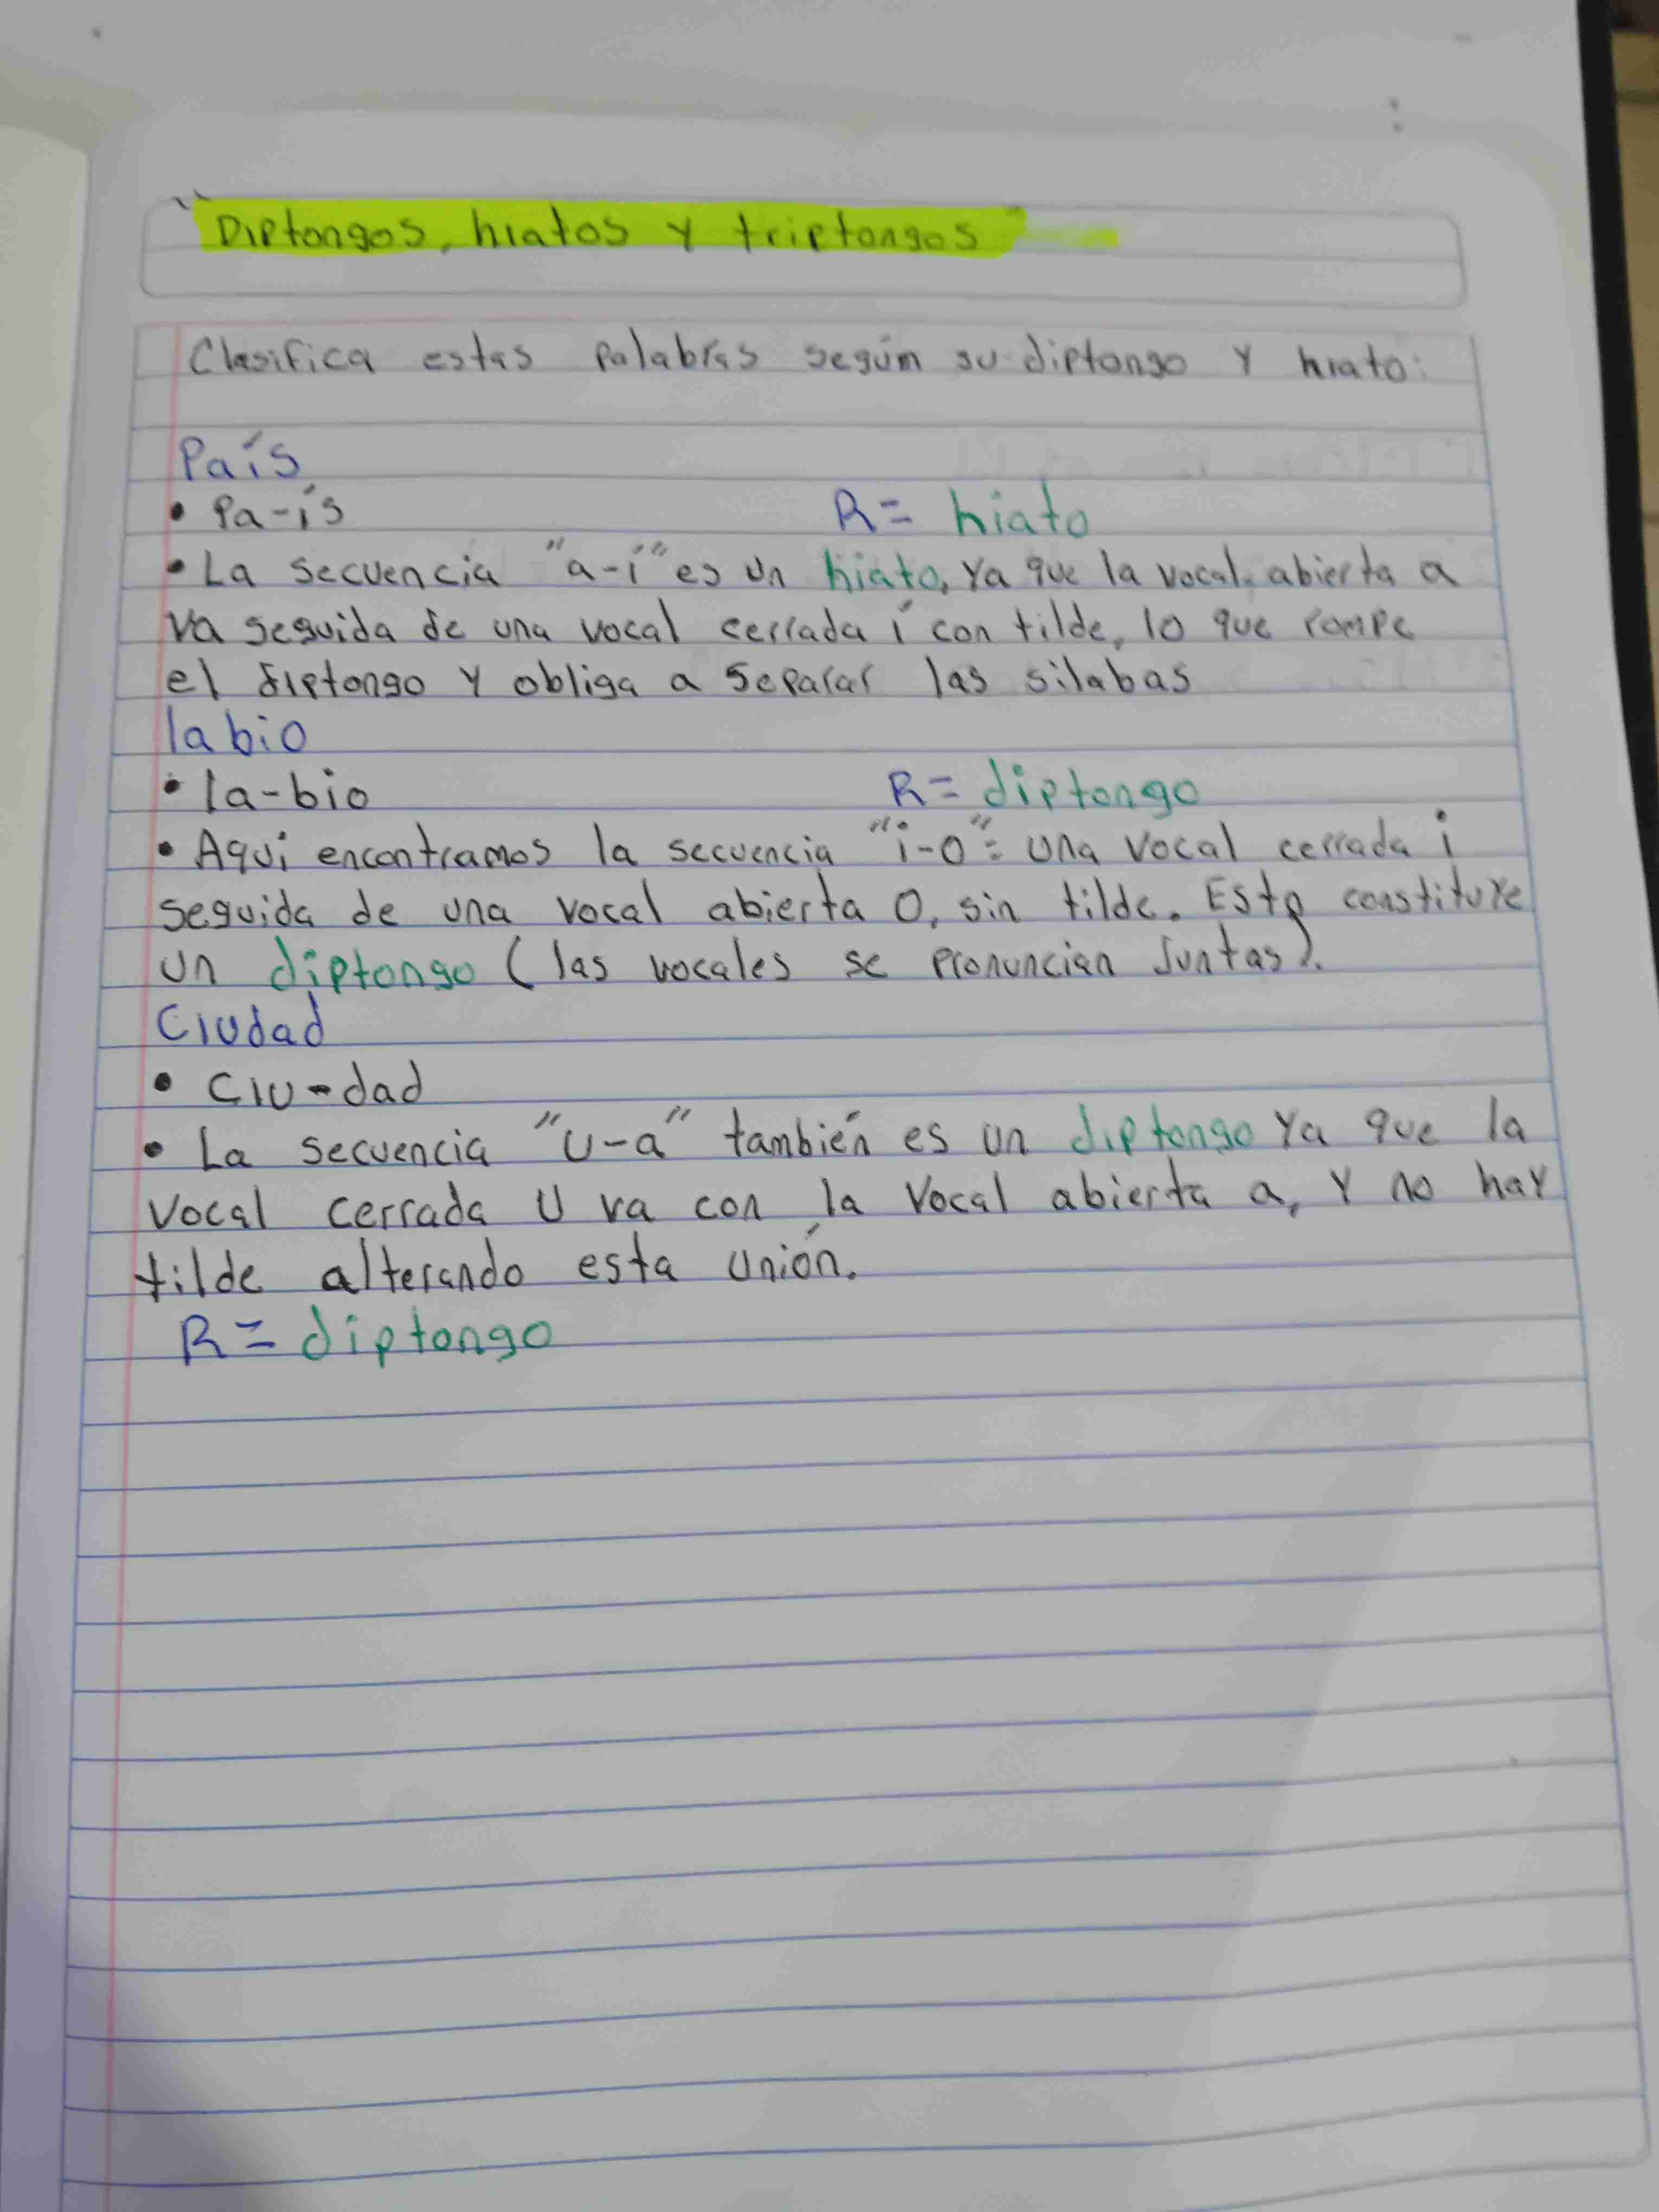 "Diptongos, hiatos y triptongos"
Clasifica estas palabras según su diptongo y hiato:
País
• Pa-ís R= hiato
• La secuencia "a-í" es un hiato, ya que la vocal abierta a
va seguida de una vocal cerrada í con tilde, lo que rompe
el diptongo y obliga a separar las silabas
labio
• la-bio R= diptongo
• Aqui encontramos la secuencia "i-o": una vocal cerrada i
seguida de una vocal abierta o, sin tilde. Esto constituye
un diptongo (las vocales se pronuncian Juntas).
Ciudad
• Ciu-dad
• La secuencia "u-a" también es un diptongo ya que la
vocal cerrada u va con la vocal abierta a, y no hay
tilde alterando esta unión.
R= diptongo